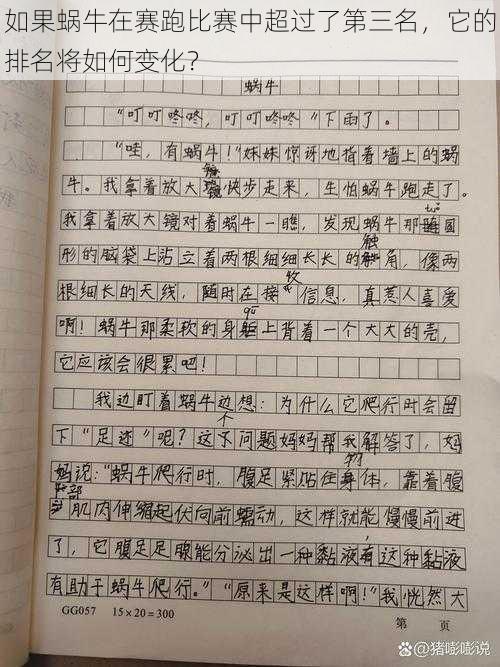 如果蜗牛在赛跑比赛中超过了第三名，它的
排名将如何变化？
蜗牛
“叮叮咚咚，叮叮咚咚”下雨了。
“哇，有蜗牛！”妹妹惊讶地指着墙上的蜗
触
牛。我拿着放大镜快步走来，生怕蜗牛跑走了。
我拿着放大镜对着蜗牛一瞧，发现蜗牛那椭圆
形的脑袋上沾立着两根细细长长的触角，像两
触
收
根细长的天线，随时在接收信息，真惹人喜爱
qū
啊！蜗牛那柔软的身躯上背着一个大大的壳，
它应该会很累吧！
我边盯着蜗牛边想：为什么它爬行时会留
个
下“足迹”呢？这个问题妈妈帮我解答了，妈
物
妈说：“蜗牛爬行时，腹足紧贴住身体，靠着腹
部
肌肉伸缩起伏向前蠕动，这样就能慢慢前进
了，它腹足足腺能分泌出一种黏液，这种黏液
有助于蜗牛爬行。”“原来是这样啊！”我恍然大
GG057 15×20=300
第 页
@猪嘭嘭说